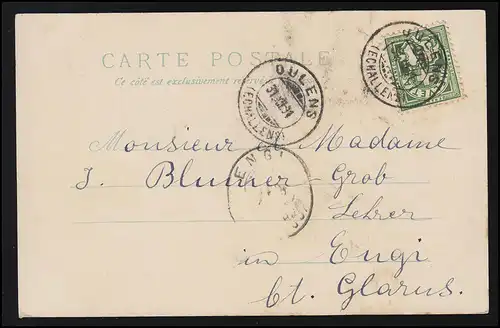 CARTE POSTALE
Ce côté est exclusivement réservé
OULENS
(ECHALLENS)
OULENS
(ECHALLENS)
Monsieur Madame
J. Blumer-Grob
Lehrer
ENGI
in Engi
Ct. Glarus.